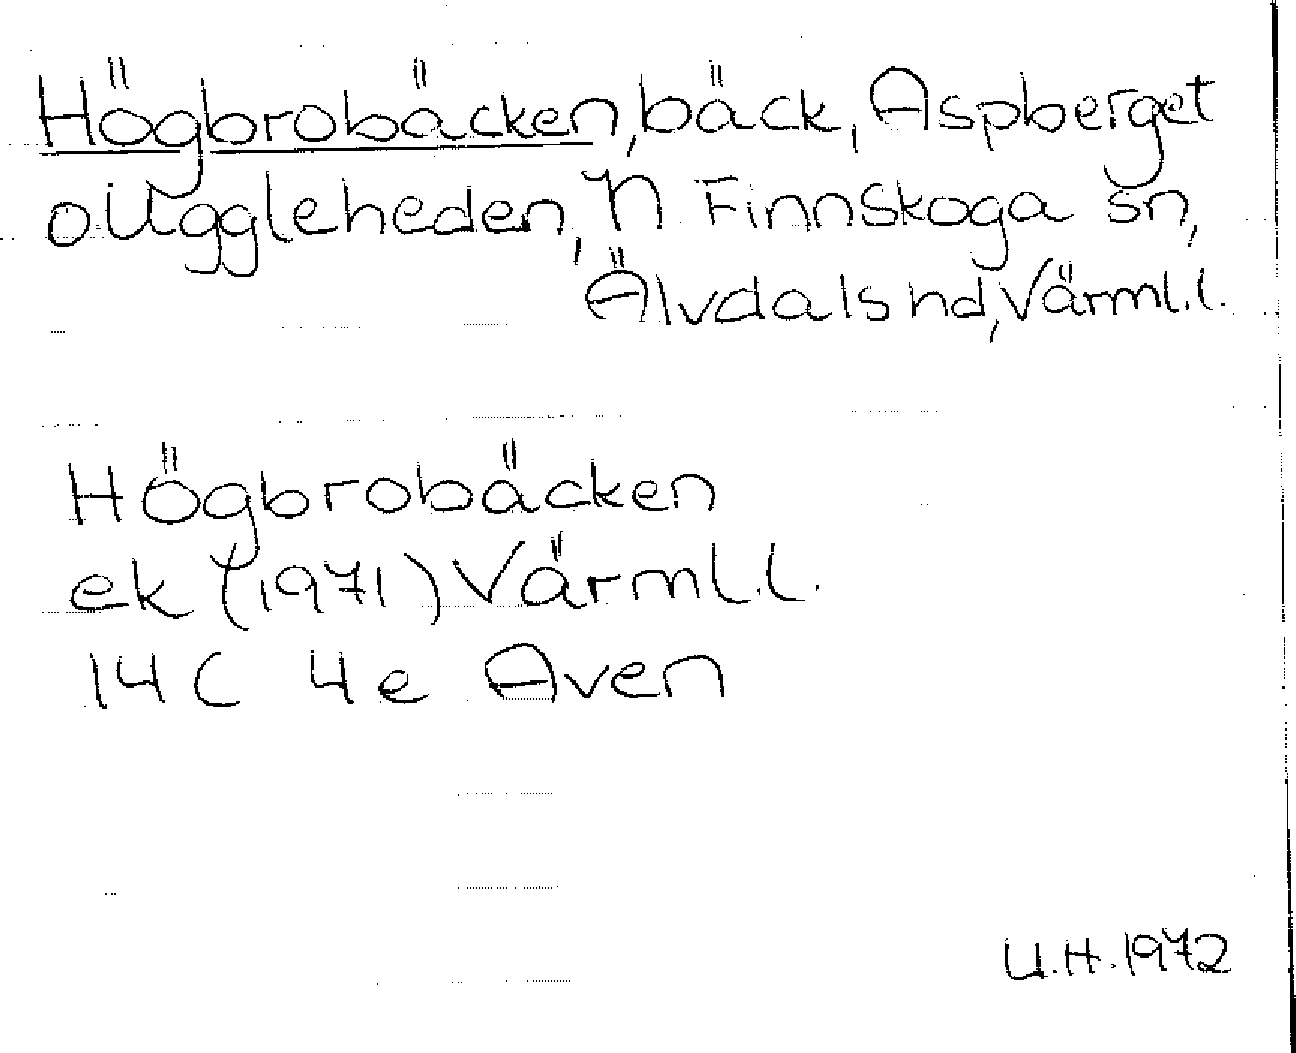 Högbrobäcken, bäck, Aspberget
o. Uggleheden, N Finnskoga sn,
Älvdals hd, Värml.l.
Högbrobäcken
ek (1971) Värml.l.
14C 4e Aven
U.H. 1972